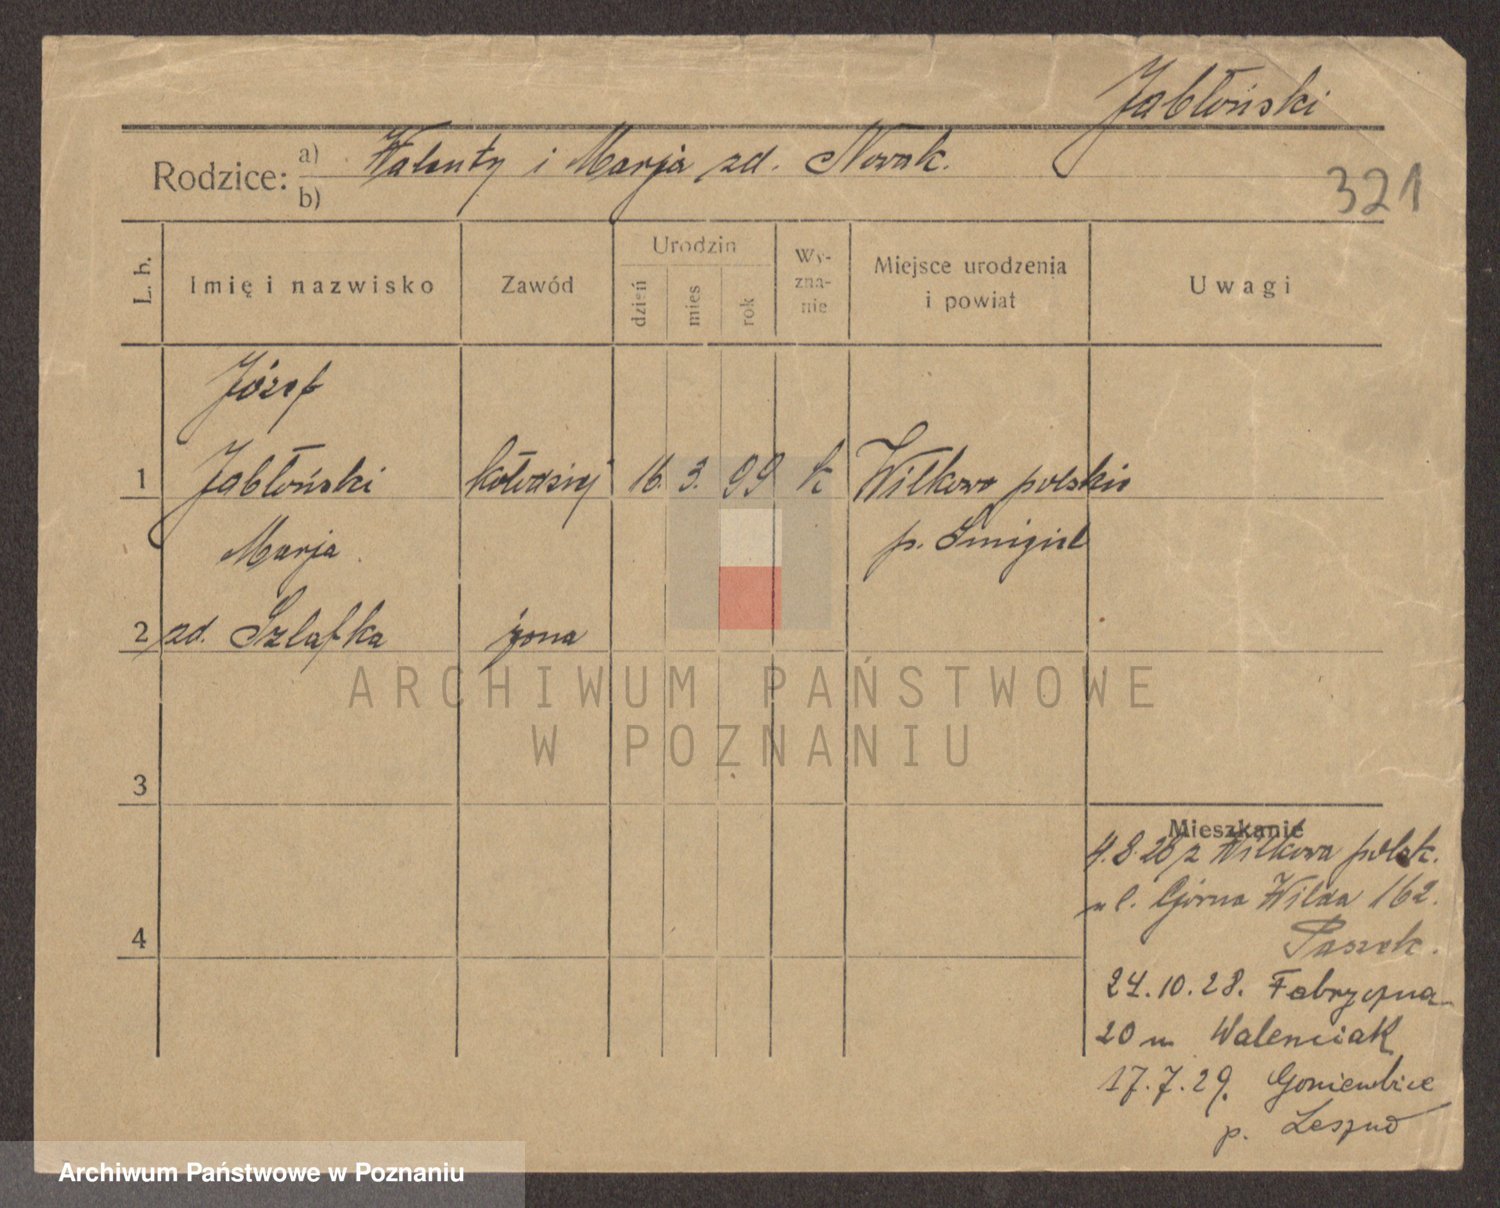 Jabłoński
Rodzice: a) Walenty i Marja zd. Nowak.
b)
321
L. h.
Imię i nazwisko
Zawód
Urodzin
dzień
mies
rok
Wy-
zna-
nie
Miejsce urodzenia
i powiat
Uwagi
Józef
1 Jabłoński kołodziej 16. 3. 99 k Wilkowo polskie
p. Śmigiel
Marja
2 zd. Szlafka żona
ARCHIWUM PAŃSTWOWE
W POZNANIU
3
4
Mieszkanie
4.8.28 z Wilkowa polsk.
ul. Górna Wilda 162.
Paszek.
24.10.28. Fabryczna
20 m Walenciak
17.7.29. Goniembice
p. Leszno
Archiwum Państwowe w Poznaniu